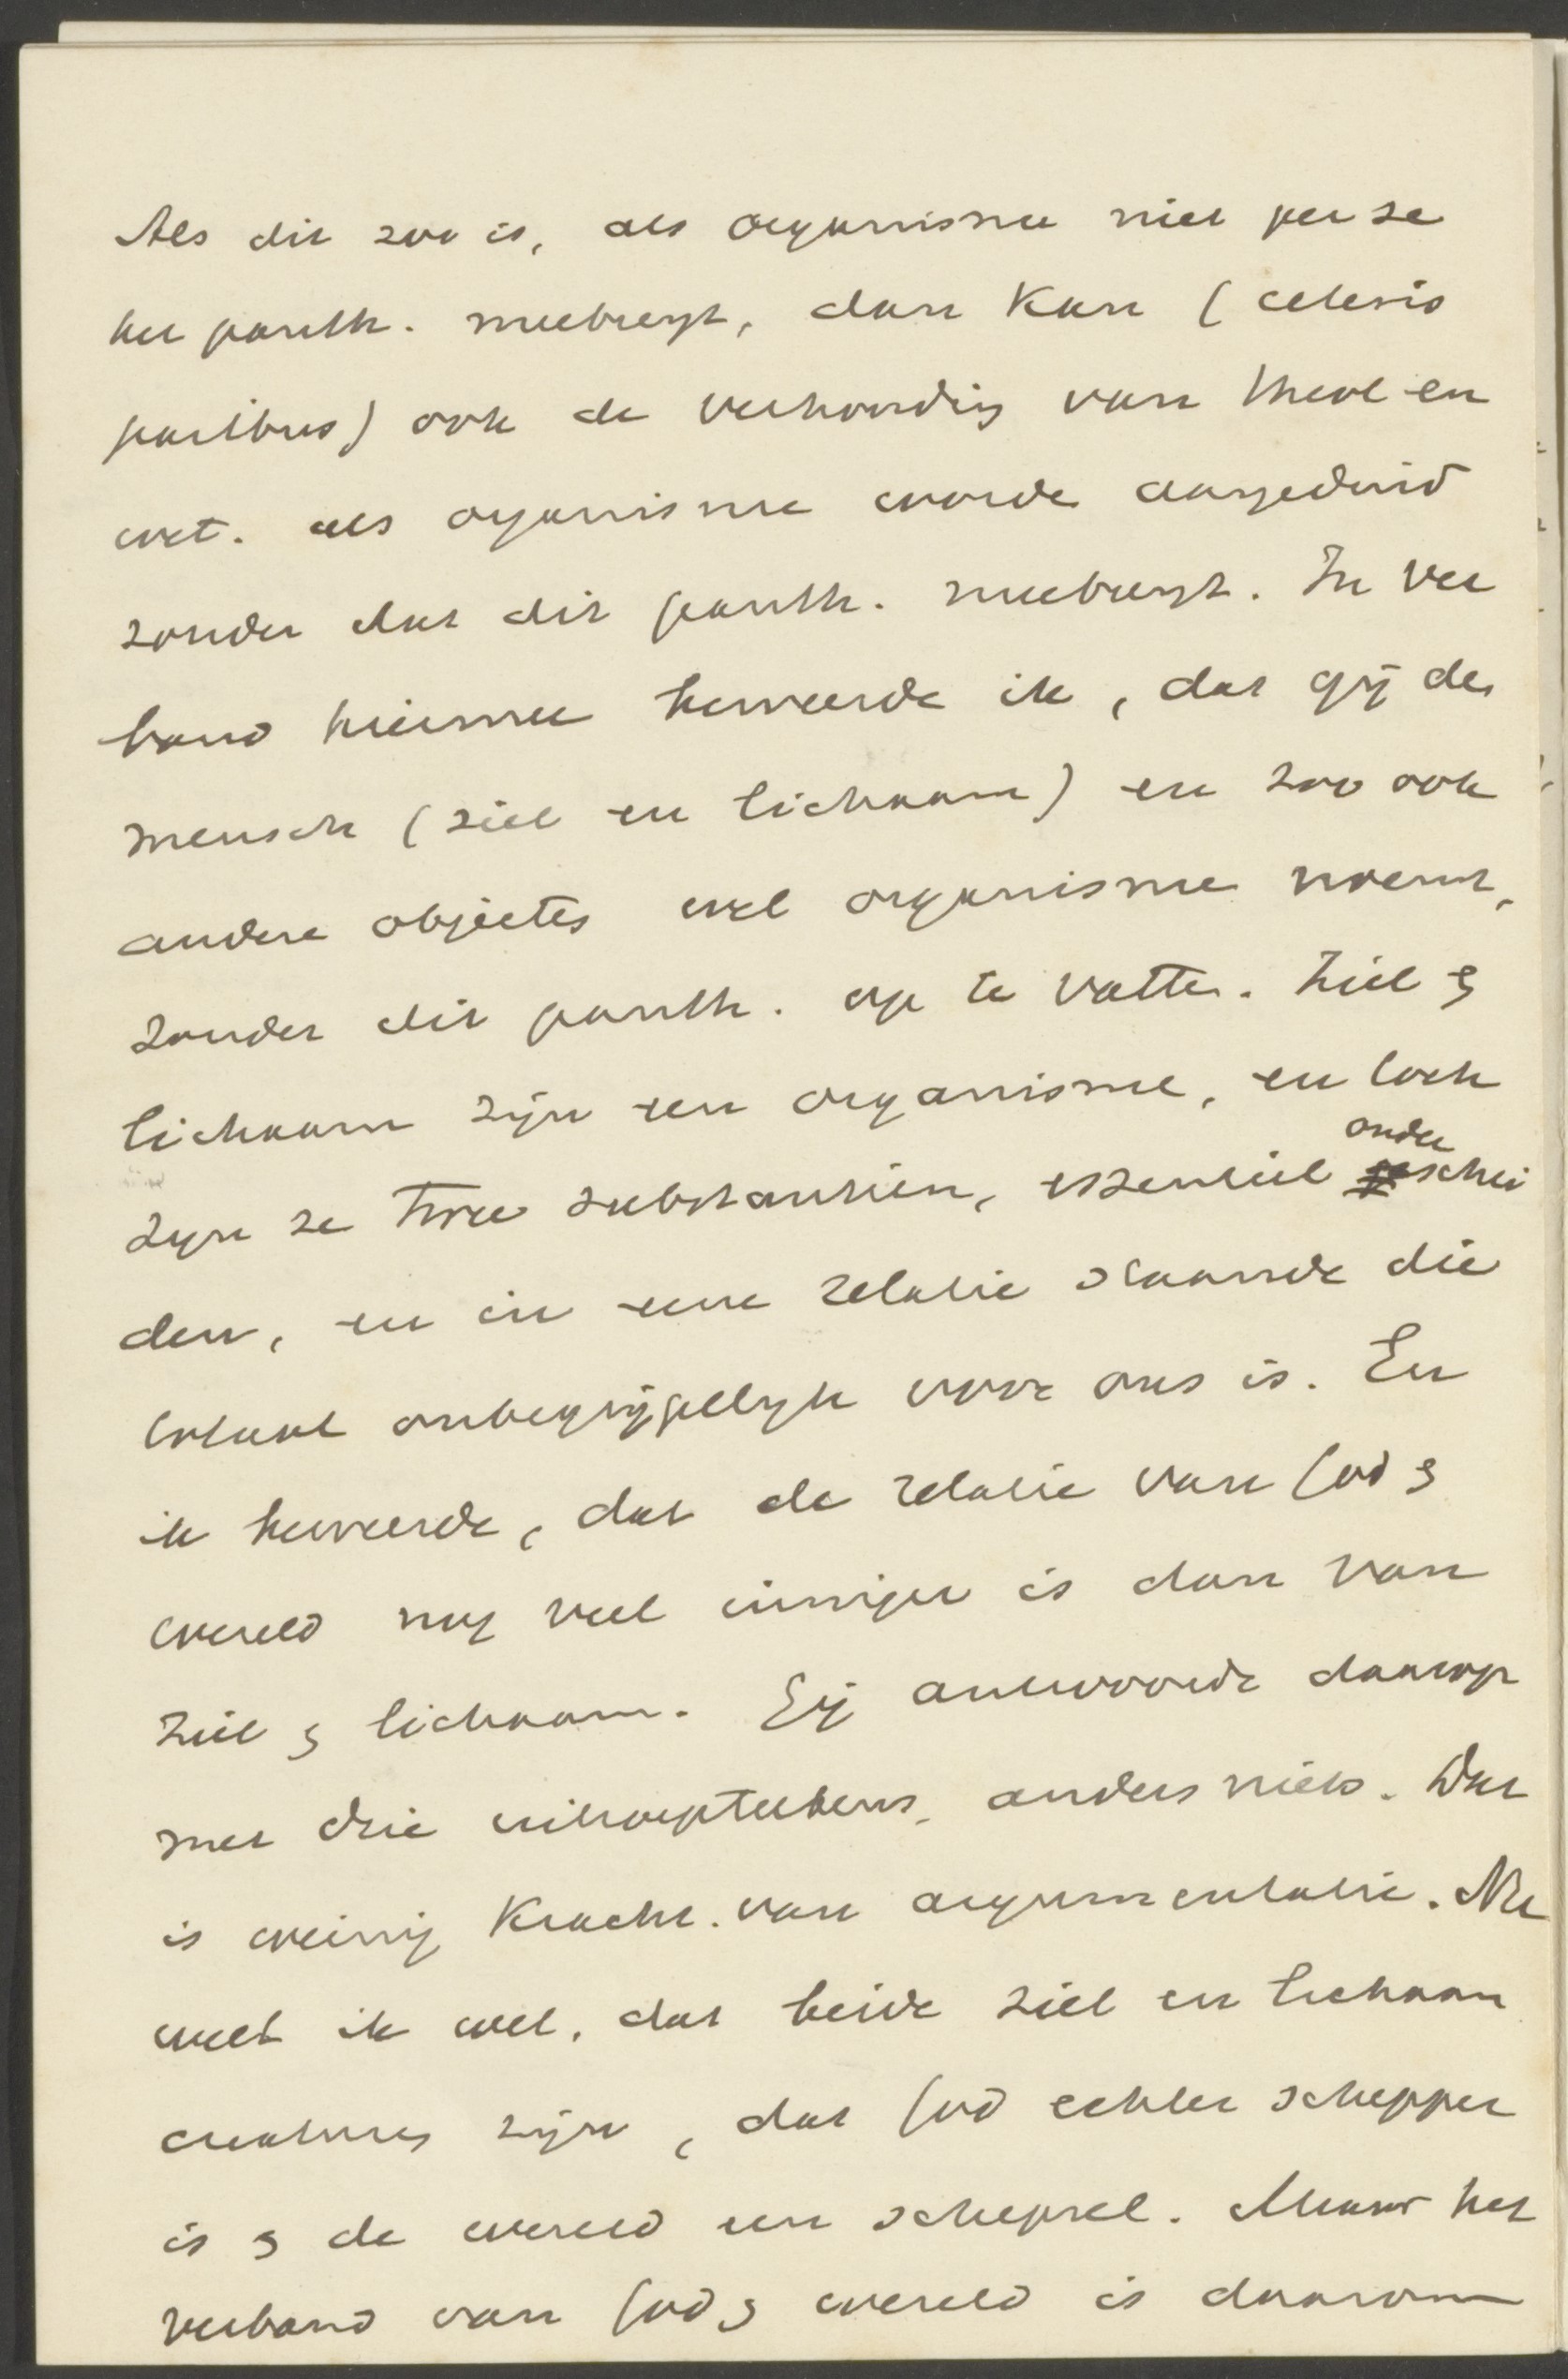 Als dit zoo is, als organisme niet per se
het panth. meebrengt, dan kan (ceteris
paribus) ook de verhouding van theol en
wet. als organisme worde aangeduid
zonder dat dit panth. meebrengt. In ver
band hiermee beweerde ik, dat gij den
mensch (ziel en lichaam) en zoo ook
andere objecten wel organisme noemt,
zonder dit panth. op te vatten. Ziel &
lichaam zijn een organisme, en toch
zijn ze twee substantien, essentieel onderschei
den, en in eene relatie staande die
totaal onbegrijpelijk voor ons is. En
ik beweerde, dat de relatie van God &
wereld nog veel inniger is dan van
ziel & lichaam. Gij antwoordde daarop
met drie uitroepteekens, anders niets. Dat
is weinig kracht van argumentatie. Nu
weet ik wel, dat beide ziel en lichaam
creatures zijn, dat God echter schepper
is & de wereld een schepsel. Maar het
verband van God & wereld is daarom